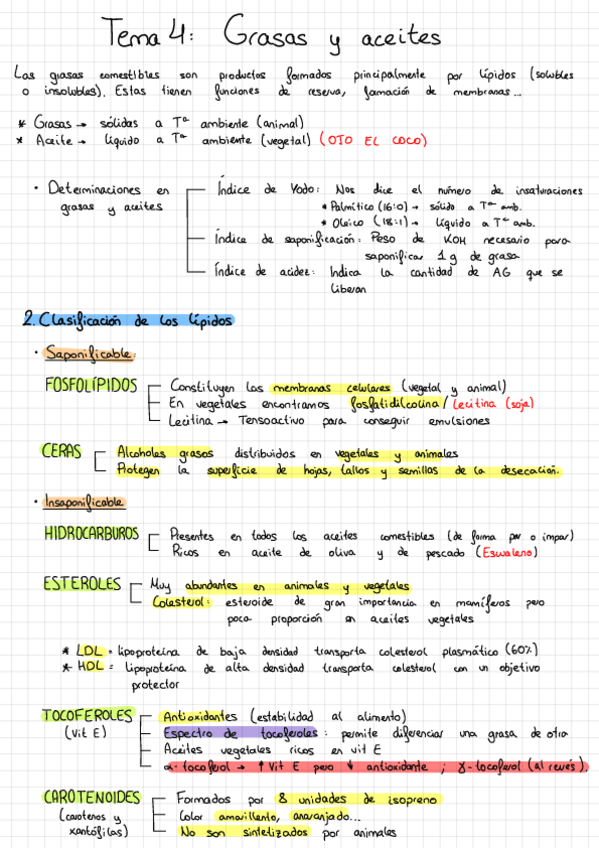 Tema 4: Grasas y aceites
Las grasas comestibles son productos formados principalmente por lípidos (solubles
o insolubles). Estas tienen funciones de reserva, formación de membranas...
* Grasas → sólidas a Tª ambiente (animal)
* Aceite → líquido a Tª ambiente (vegetal) (OJO EL COCO)
• Determinaciones en
grasas y aceites
Índice de Yodo: Nos dice el número de insaturaciones
* Palmítico (16:0) → sólido a Tª amb.
* Oleico (18:1) → líquido a Tª amb.
Índice de saponificación: Peso de KOH necesario para
saponificar 1 g de grasa
Índice de acidez: Indica la cantidad de AG que se
liberan
2. Clasificación de los lípidos
• Saponificable:
FOSFOLÍPIDOS
Constituyen las membranas celulares (vegetal y animal)
En vegetales encontramos fosfatidilcolina/ lecitina (soja)
Lecitina → Tensoactivo para conseguir emulsiones
CERAS
Alcoholes grasos distribuidos en vegetales y animales
Protegen la superficie de hojas, tallos y semillas de la desecación.
• Insaponificable
HIDROCARBUROS
Presentes en todos los aceites comestibles (de forma par o impar)
Ricos en aceite de oliva y de pescado (Escualeno)
ESTEROLES
Muy abundantes en animales y vegetales
Colesterol: esteroide de gran importancia en mamíferos pero
poca proporción en aceites vegetales
* LDL = lipoproteína de baja densidad transporta colesterol plasmático (60%)
* HDL = lipoproteína de alta densidad transporta colesterol con un objetivo
protector
TOCOFEROLES
(Vit E)
Antioxidantes (estabilidad al alimento)
Espectro de tocoferoles: permite diferenciar una grasa de otra
Aceites vegetales ricos en vit E
α-tocoferol → ↑ Vit E pero ↓ antioxidante ; γ-tocoferol (al revés).
CAROTENOIDES
(carotenos y
xantófilas)
Formados por 8 unidades de isopreno
Color amarillento, anaranjado...
No son sintetizados por animales